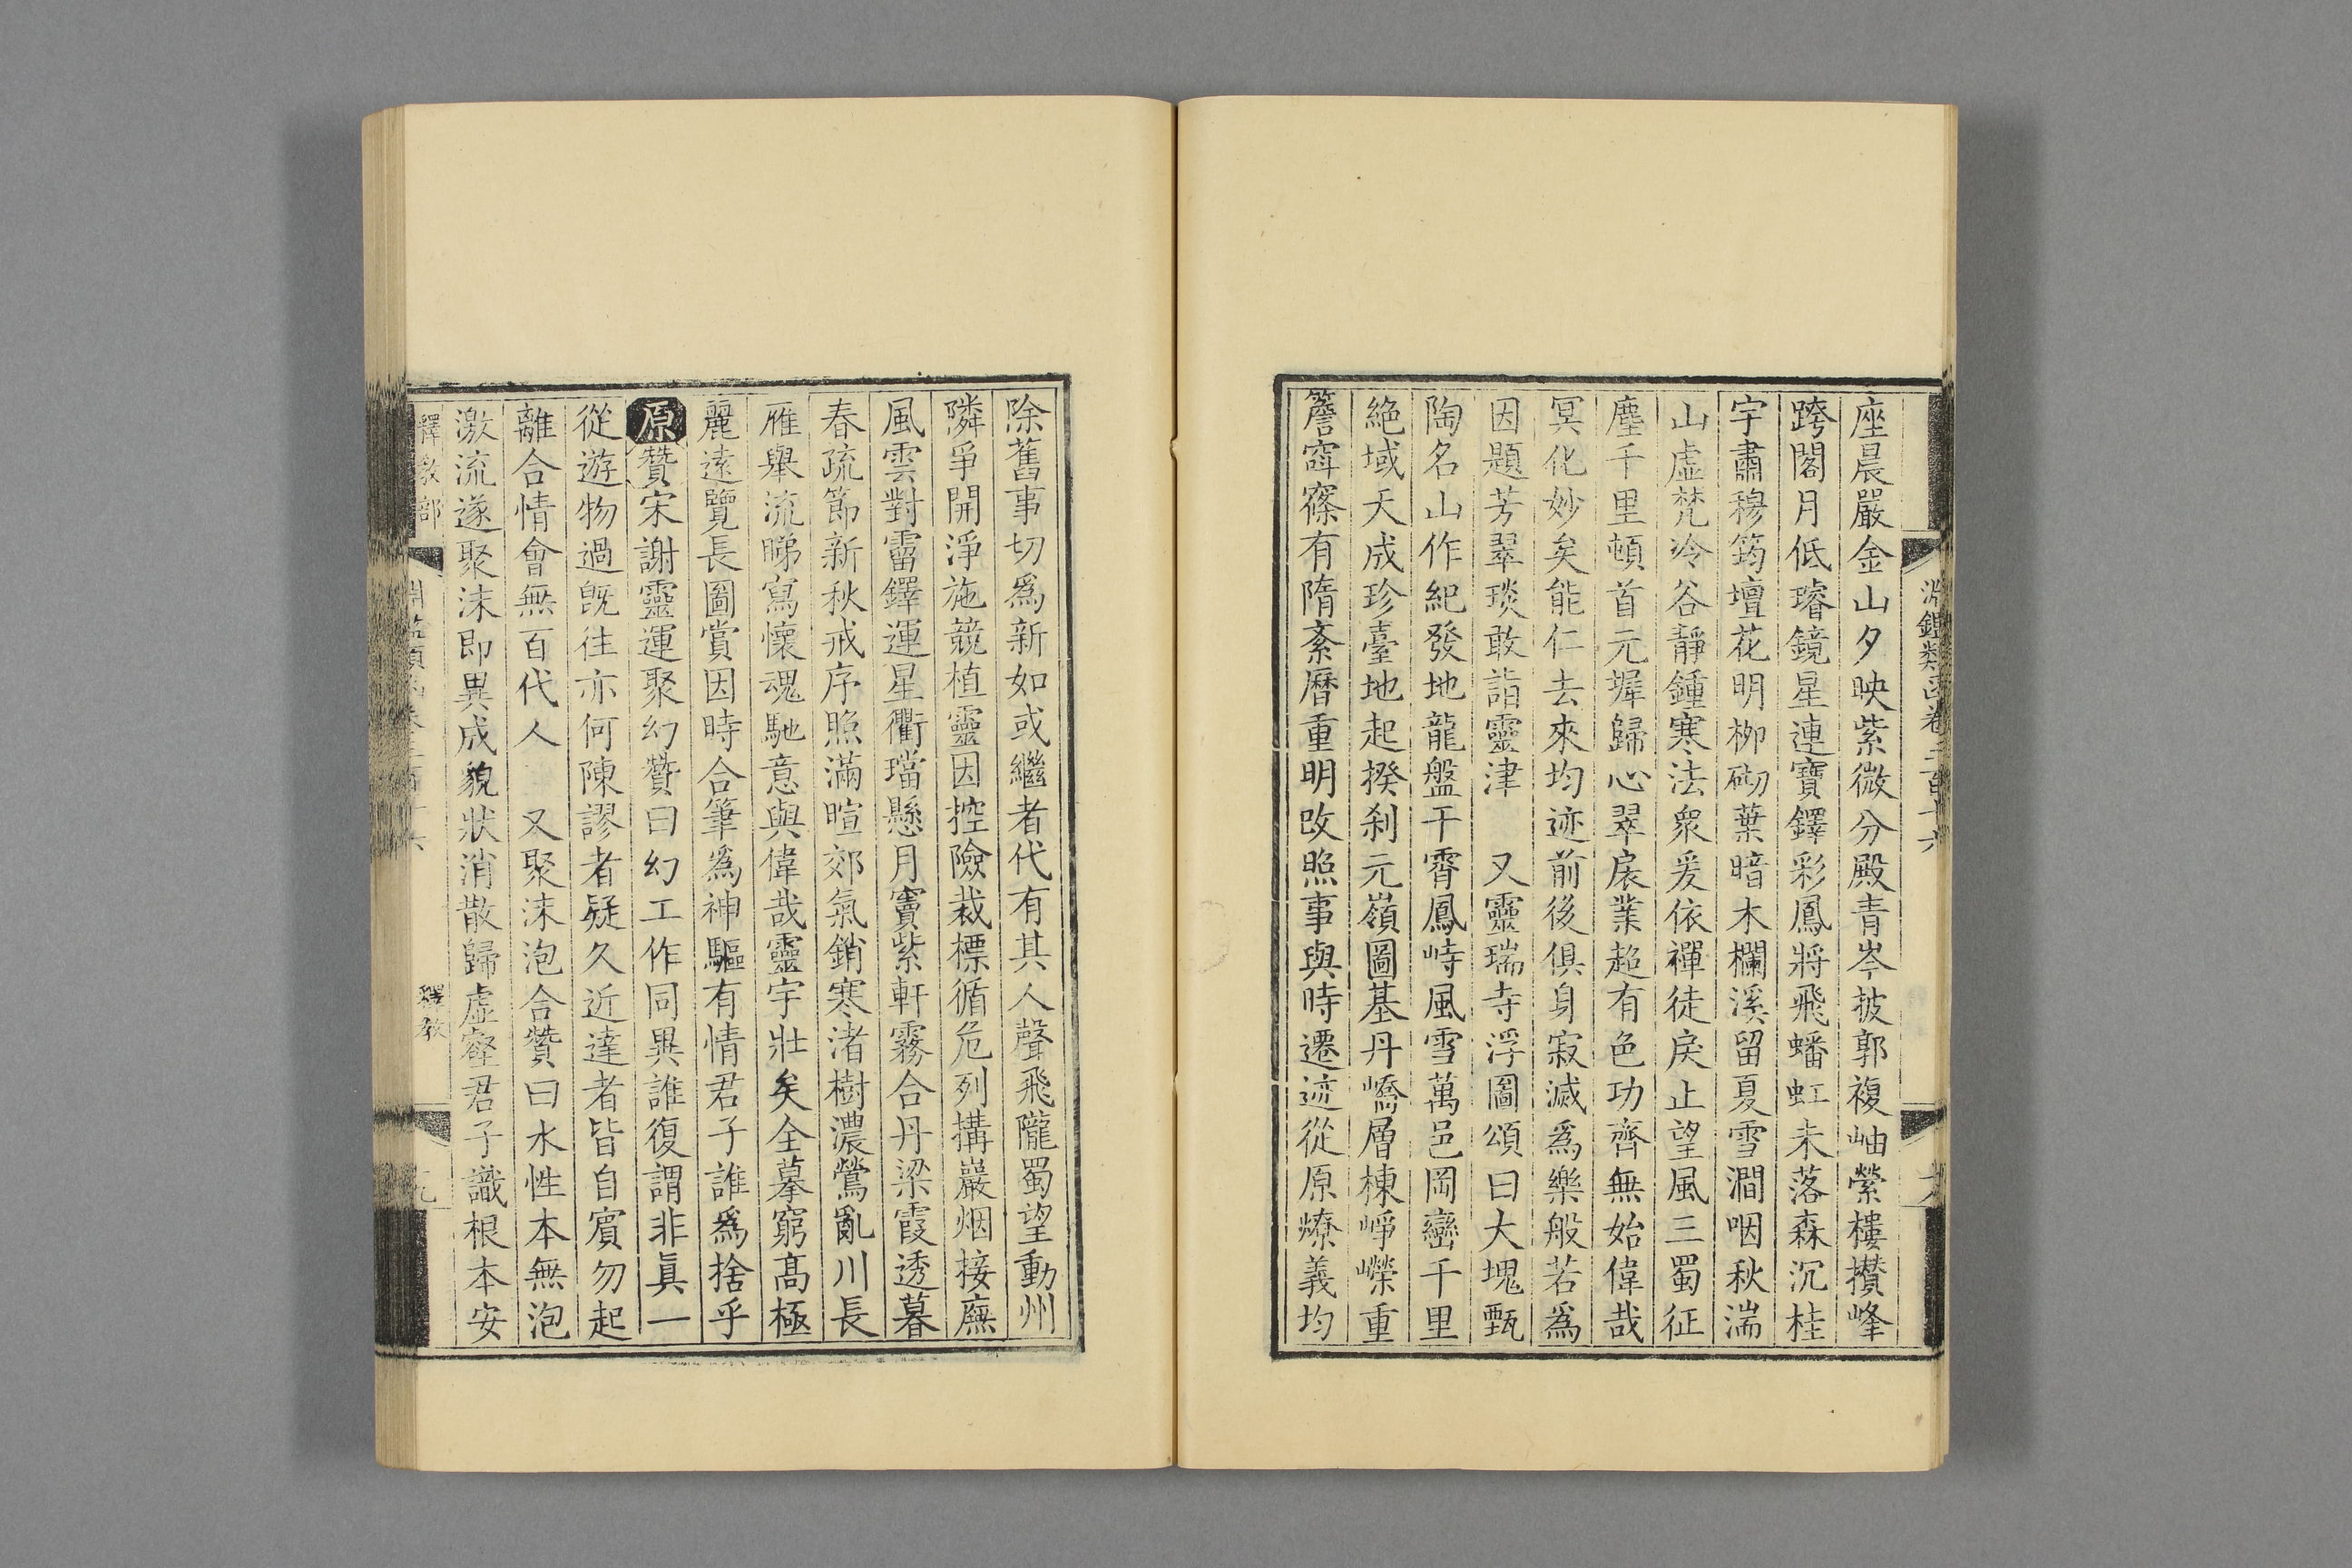 淵鑑類函卷三百十六
座晨嚴金山夕映紫微分殿青岑披郭複岫縈樓攢峰
跨閣月低璿鏡星連寶鐸彩鳳將飛蟠虹未落森沉桂
宇肅穆筠壇花明柳砌葉暗木欄溪留夏雪澗咽秋湍
山虛梵冷谷靜鍾寒法衆爰依禪徒戾止望風三蜀征
塵千里頓首元墀歸心翠扆業超有色功齊無始偉哉
冥化妙矣能仁去來均迹前後俱身寂滅爲樂般若爲
因題芳翠琰敢詣靈津　又靈瑞寺浮圖頌曰大塊甄
陶名山作紀發地龍盤干霄鳳峙風雪萬邑岡巒千里
絶域天成珍臺地起揆刹元嶺圖基丹嶠層棟崢嶸重
簷窅窱有隋紊曆重明改照事與時遷迹從原燎義均
除舊事切爲新如或繼者代有其人聲飛隴蜀望動州
隣爭開淨施競植靈因控險裁標循危列搆巖烟接廡
風雲對霤鐸運星衢璫懸月竇紫軒霧合丹梁霞透暮
春疏節新秋戒序照滿暄郊氣銷寒渚樹濃鶯亂川長
雁舉流睇寫懷魂馳意與偉哉靈宇壯矣全摹窮高極
麗遠覽長圖賞因時合筆爲神驅有情君子誰爲捨乎
原贊宋謝靈運聚幻贊曰幻工作同異誰復謂非眞一
從遊物過旣往亦何陳謬者疑久近達者皆自賓勿起
離合情會無百代人　又聚沫泡合贊曰水性本無泡
激流遂聚沫即異成貌狀消散歸虛壑君子識根本安
釋教部
釋教